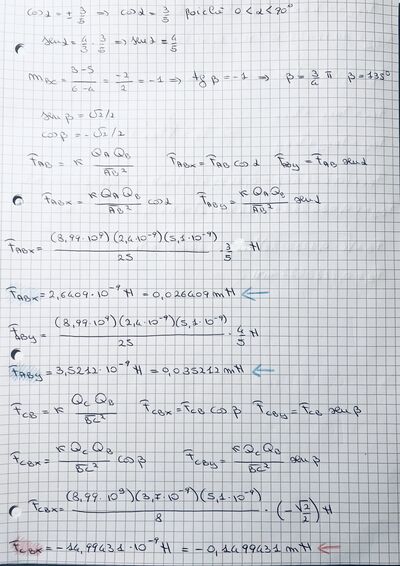 cos α = ± 3/5 ⇒ cos α = 3/5 poiché 0 < α < 90°
sen α = 4/3 · 3/5 ⇒ sen α = 4/5
m_BC = (3-5)/(6-4) = -2/2 = -1 ⇒ tg β = -1 ⇒ β = 3/4 π β = 135°
sen β = √2/2
cos β = -√2/2
F_AB = K Q_A Q_B / AB² F_ABx = F_AB cos α F_ABy = F_AB sen α
F_ABx = K Q_A Q_B / AB² cos α F_ABy = K Q_A Q_B / AB² sen α
F_ABx = (8,99·10⁹)(2,4·10⁻⁹)(5,1·10⁻⁹) / 25 · 3/5 N
F_ABx = 2,6409·10⁻⁹ N = 0,026409 mN ←
F_ABy = (8,99·10⁹)(2,4·10⁻⁹)(5,1·10⁻⁹) / 25 · 4/5 N
F_ABy = 3,5212·10⁻⁹ N = 0,035212 mN ←
F_CB = K Q_C Q_B / BC² F_CBx = F_CB cos β F_CBy = F_CB sen β
F_CBx = K Q_C Q_B / BC² cos β F_CBy = K Q_C Q_B / BC² sen β
F_CBx = (8,99·10⁹)(3,7·10⁻⁹)(5,1·10⁻⁹) / 8 · (-√2/2) N
F_CBx = -14,99431·10⁻⁹ N = -0,1499431 mN ←